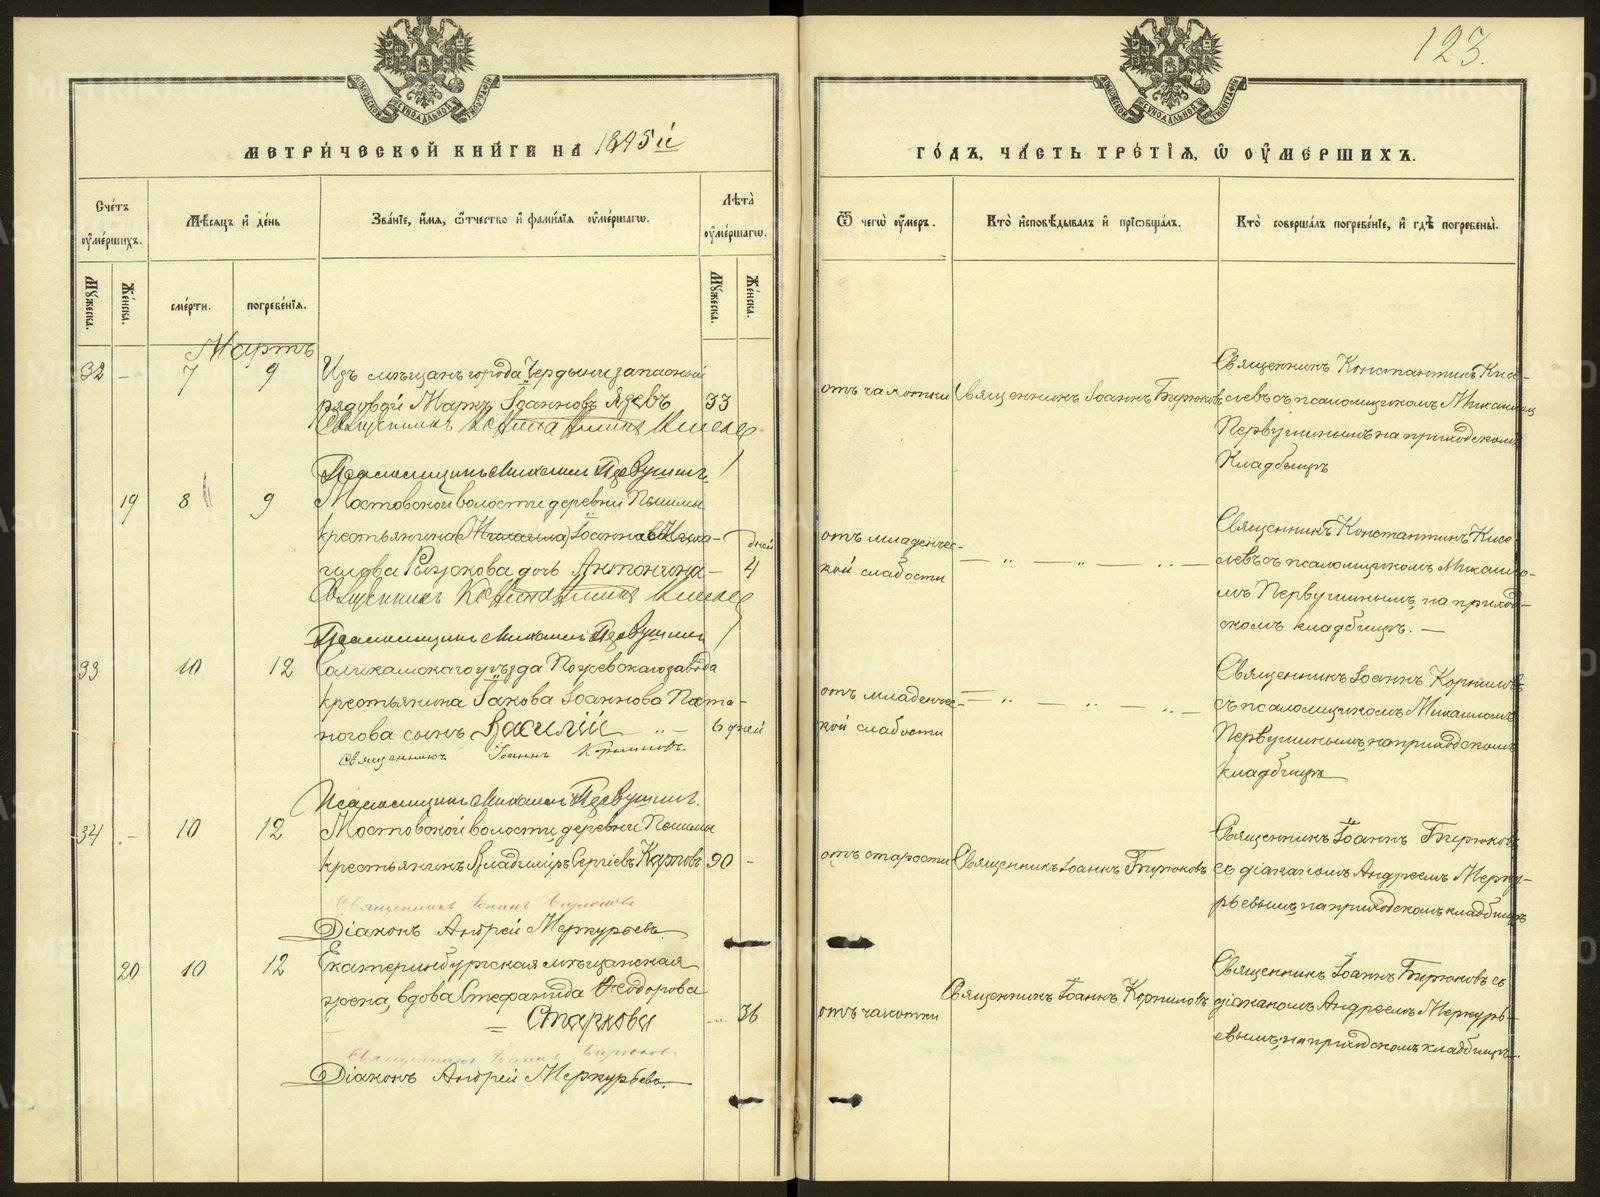 123.
МЕТРИЧЕСКОЙ КНИГИ НА 1895й
ГОДЪ, ЧАСТЬ ТРЕТІЯ, Ѿ ОУМЕРШИХЪ.
Счетъ оумершихъ.
Мѣсяцъ и день
Званіе, имя, отчество и фамилія оумершагѡ.
Лѣта оумершагѡ.
Ѿ чегѡ оумеръ.
Кто исповѣдывалъ и пріѡбщалъ.
Кто совершалъ погребеніе, и гдѣ погребены.
Мужеска.
Женска.
смерти.
погребенія.
Мужеска.
Женска.
Мартъ
32 - 7 9
Изъ мѣщанъ города Чердыни запасный
рядовой Маркъ Іоанновъ Язевъ 33
Священникъ Константинъ Киселев
Псаломщикъ Михаилъ Первушинъ.
отъ чахотки
Священникъ Іоаннъ Бирюковъ
Священникъ Константинъ Кисе-
левъ съ псаломщикомъ Михаиломъ
Первушинымъ на приходскомъ
кладбищѣ
19 8 9
Мостовской волости деревни Пышмы
крестьянина (Михаила) Іоаннова
дочь Антонина- дней 4
Священникъ Константинъ Киселев
Псаломщикъ Михаилъ Первушинъ
отъ младенчес-
кой слабости
— „ — „ — „ —
Священникъ Константинъ Кисе-
левъ съ псаломщикомъ Михаило-
мъ Первушинымъ, на приход-
скомъ кладбищѣ. —
33 10 12
Соликамскаго уѣзда Пожевскаго завода
крестьянина Іакова Іоаннова
сынъ Василій — „ — 6 дней
Священникъ Іоаннъ Корниловъ.
Псаломщикъ Михаилъ Первушинъ.
отъ младенчес-
кой слабости
— „ — „ — „ —
Священникъ Іоаннъ Корниловъ
съ псаломщикомъ Михаиломъ
Первушинымъ, на приходскомъ
кладбищѣ
34 - 10 12
Мостовской волости, деревни Пышмы
крестьянинъ Владиміръ Сергіевъ Карповъ 90 -
Священникъ Іоаннъ Бирюковъ
Діаконъ Андрей Меркурьевъ.
отъ старости
Священникъ Іоаннъ Бирюковъ
Священникъ Іоаннъ Бирюковъ
съ діакономъ Андреемъ Мерку-
рьевымъ, на приходскомъ кладбищѣ
20 10 12
Екатеринбургская мѣщанская
жена, вдова Стефанида Ѳеодорова
Старкова 36
Священникъ Іоаннъ Бирюковъ
Діаконъ Андрей Меркурьевъ.
отъ чахотки
Священникъ Іоаннъ Корниловъ
Священникъ Іоаннъ Бирюковъ съ
діакономъ Андреемъ Меркурь-
евымъ, на приходскомъ кладбищѣ.